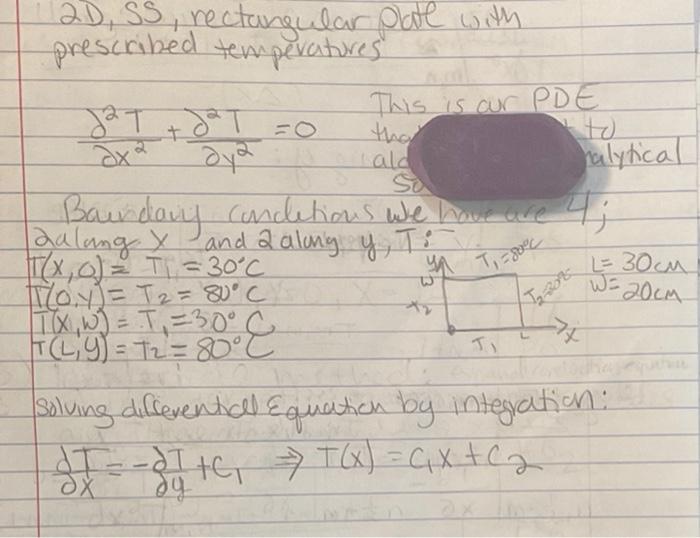 2D, SS, rectangular plate with
prescribed temperatures
∂²T/∂x² + ∂²T/∂y² = 0
This is our PDE
to
Boundary conditions we have are 4;
2 along x and 2 along y, T:-
T(x,0) = T₁ = 30°C
T(0,y) = T₂ = 80°C
T(x,w) = T₁ = 30°C
T(L,y) = T₂ = 80°C
y
w
T₁=80°C
T₂
T₁
L
x
L = 30cm
W = 20cm
Solving differential Equation by integration:
∂T/∂x = -∂T/∂y + C₁ ⇒ T(x) = C₁x + C₂